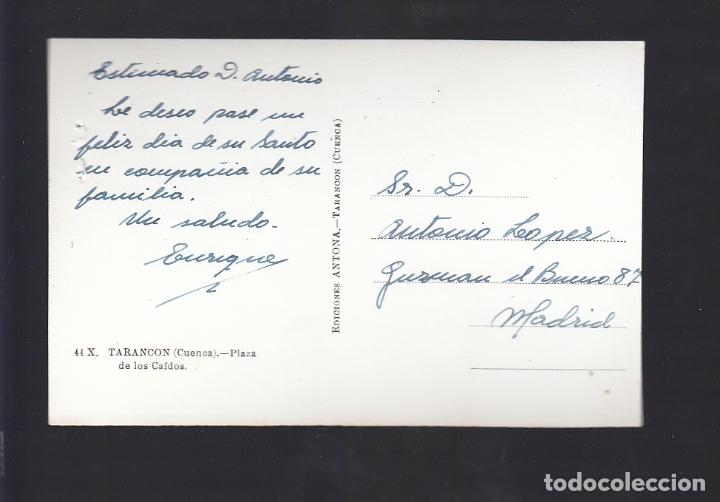 Estimado D. Antonio
Le deseo pase un
feliz dia de su Santo
en compañia de su
familia.
Un saludo.
Enrique
44 X. TARANCON (Cuenca).—Plaza
de los Caídos.
EDICIONES ANTONA.—TARANCON (CUENCA)
Sr. D.
Antonio Lopez
Guzman el Bueno 87
Madrid
todocoleccion.net